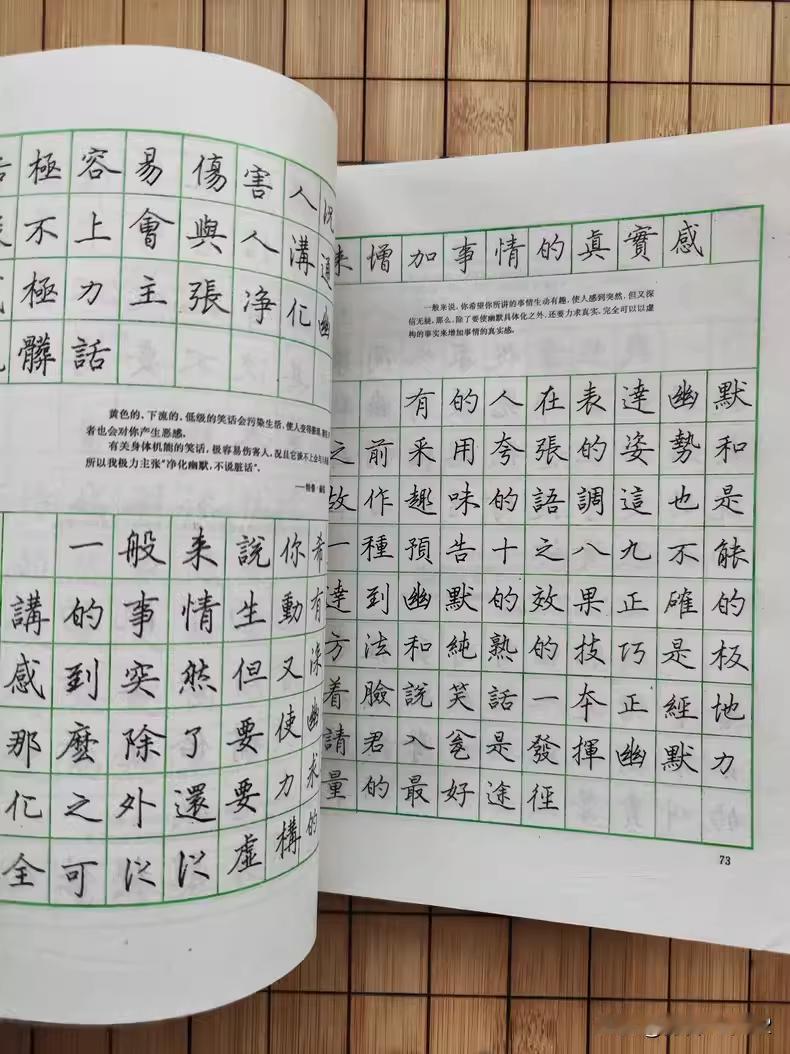 極容易傷害人況
不上會與人溝通
極力主張净化幽
髒話
黄色的、下流的、低级的笑话会污染生活，使人变得
者也会对你产生恶感。
有关身体机能的笑话，极容易伤害人，况且它谈不上会与人
所以我极力主张“净化幽默，不说脏话”。
一般来說你希
講的事情生動有
感到突然但又深
那麽除了要使幽
化之外還要力求
全可以以虚構的
来增加事情的真實感
一般来说，你希望你所讲的事情生动有趣，使人感到突然，但又深
信无疑，那么，除了要使幽默具体化之外，还要力求真实，完全可以以虚
构的事实来增加事情的真实感。
有的人在表達幽默
之前采用夸張的姿勢和
故作趣味的語調這也是
一種預告十之八九不能
達到幽默的效果正確的
方法和純熟的技巧是板
着臉說笑話一本正經地
請君入瓮是發揮幽默力
量的最好途徑
73